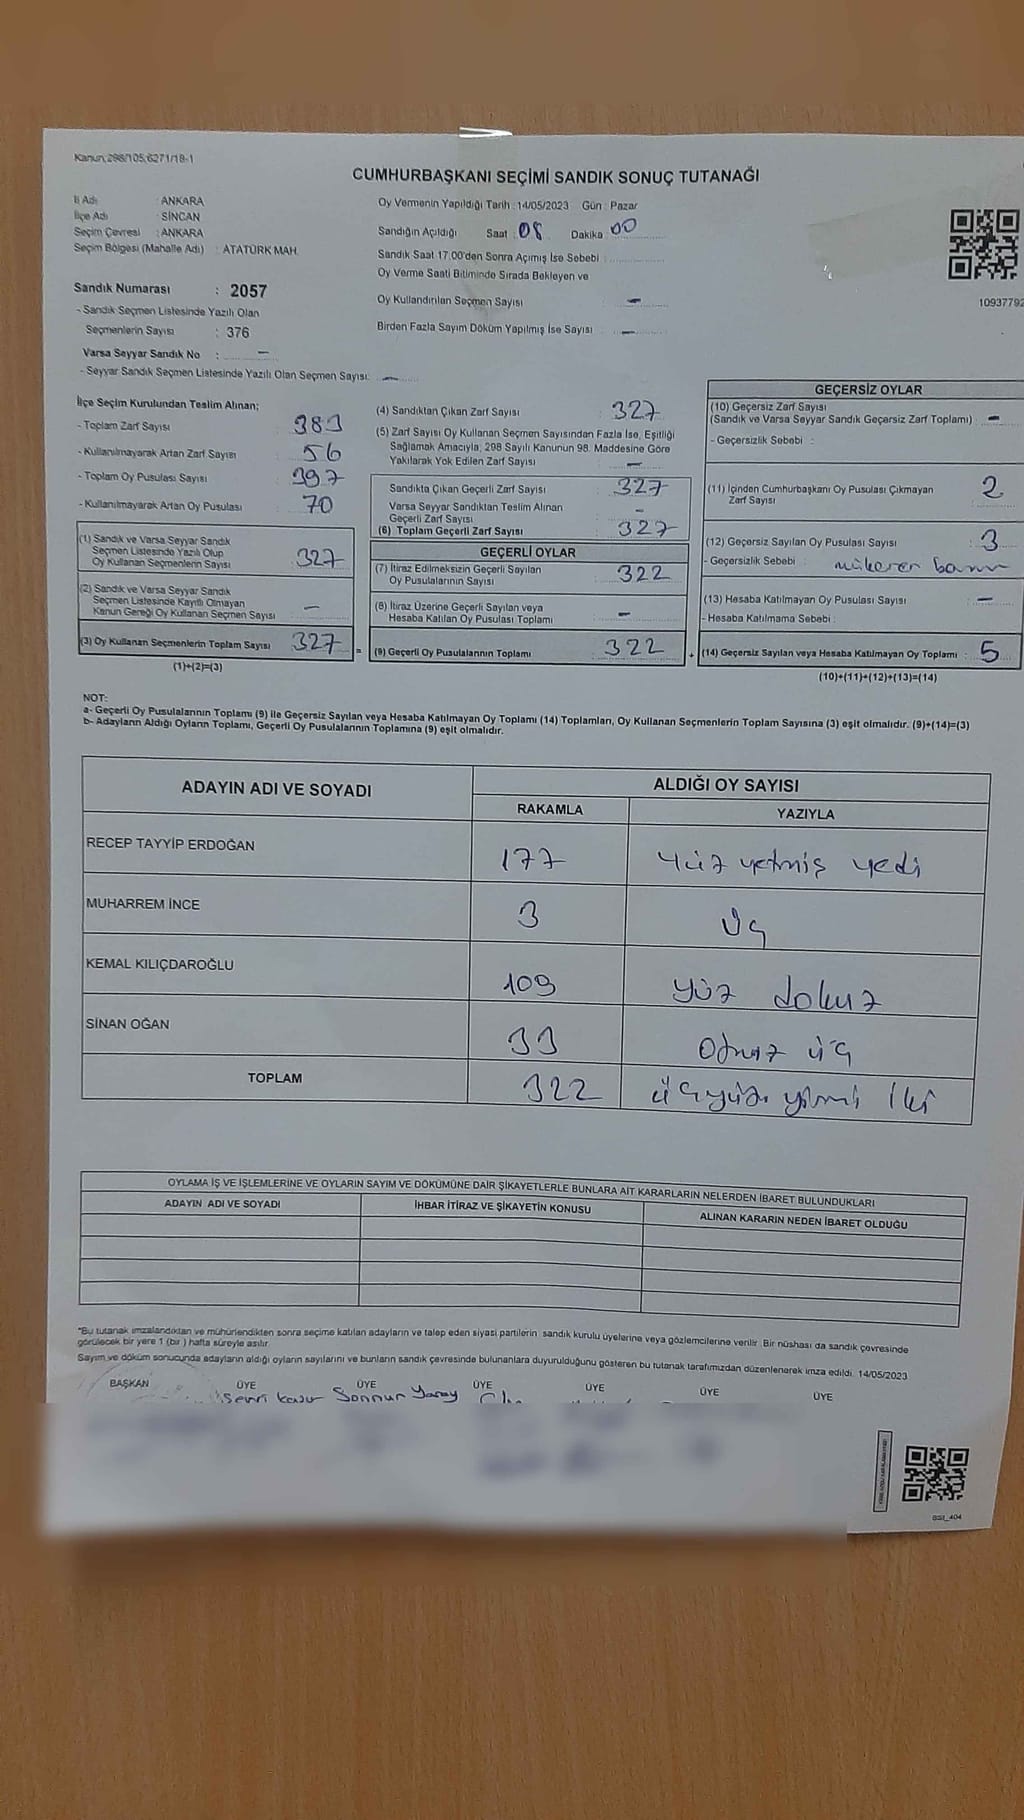 Kanun;298/105;6271/18-1
CUMHURBAŞKANI SEÇİMİ SANDIK SONUÇ TUTANAĞI
İl Adı : ANKARA
İlçe Adı : SİNCAN
Seçim Çevresi : ANKARA
Seçim Bölgesi (Mahalle Adı) : ATATÜRK MAH.
Sandık Numarası : 2057
- Sandık Seçmen Listesinde Yazılı Olan
Seçmenlerin Sayısı : 376
Varsa Seyyar Sandık No : –
- Seyyar Sandık Seçmen Listesinde Yazılı Olan Seçmen Sayısı: –
Oy Vermenin Yapıldığı Tarih : 14/05/2023 Gün : Pazar
Sandığın Açıldığı Saat : 08 Dakika : 00
Sandık Saat 17:00'den Sonra Açımış İse Sebebi :
Oy Verme Saati Bitiminde Sırada Bekleyen ve
Oy Kullandırılan Seçmen Sayısı –
Birden Fazla Sayım Döküm Yapılmış İse Sayısı : –
10937792
İlçe Seçim Kurulundan Teslim Alınan;
- Toplam Zarf Sayısı : 383
- Kullanılmayarak Artan Zarf Sayısı : 56
- Toplam Oy Pusulası Sayısı : 397
- Kullanılmayarak Artan Oy Pusulası : 70
(1) Sandık ve Varsa Seyyar Sandık
Seçmen Listesinde Yazılı Olup
Oy Kullanan Seçmenlerin Sayısı : 327
(2) Sandık ve Varsa Seyyar Sandık
Seçmen Listesinde Kayıtlı Olmayan
Kanun Gereği Oy Kullanan Seçmen Sayısı : –
(3) Oy Kullanan Seçmenlerin Toplam Sayısı : 327
(1)+(2)=(3)
=
(4) Sandıktan Çıkan Zarf Sayısı : 327
(5) Zarf Sayısı Oy Kullanan Seçmen Sayısından Fazla İse, Eşitliği
Sağlamak Amacıyla; 298 Sayılı Kanunun 98. Maddesine Göre
Yakılarak Yok Edilen Zarf Sayısı : –
Sandıkta Çıkan Geçerli Zarf Sayısı : 327
Varsa Seyyar Sandıktan Teslim Alınan
Geçerli Zarf Sayısı : –
(6) Toplam Geçerli Zarf Sayısı : 327
GEÇERLİ OYLAR
(7) İtiraz Edilmeksizin Geçerli Sayılan
Oy Pusulalarının Sayısı : 322
(8) İtiraz Üzerine Geçerli Sayılan veya
Hesaba Katılan Oy Pusulası Toplamı : –
(9) Geçerli Oy Pusulalarının Toplamı : 322
+
GEÇERSİZ OYLAR
(10) Geçersiz Zarf Sayısı
(Sandık ve Varsa Seyyar Sandık Geçersiz Zarf Toplamı) : –
- Geçersizlik Sebebi :
(11) İçinden Cumhurbaşkanı Oy Pusulası Çıkmayan
Zarf Sayısı : 2
(12) Geçersiz Sayılan Oy Pusulası Sayısı : 3
- Geçersizlik Sebebi : mükerer
(13) Hesaba Katılmayan Oy Pusulası Sayısı : –
- Hesaba Katılmama Sebebi :
(14) Geçersiz Sayılan veya Hesaba Katılmayan Oy Toplamı : 5
(10)+(11)+(12)+(13)=(14)
NOT:
a- Geçerli Oy Pusulalarının Toplamı (9) ile Geçersiz Sayılan veya Hesaba Katılmayan Oy Toplamı (14) Toplamları, Oy Kullanan Seçmenlerin Toplam Sayısına (3) eşit olmalıdır. (9)+(14)=(3)
b- Adayların Aldığı Oyların Toplamı, Geçerli Oy Pusulalarının Toplamına (9) eşit olmalıdır.
ADAYIN ADI VE SOYADI ALDIĞI OY SAYISI
RAKAMLA YAZIYLA
RECEP TAYYİP ERDOĞAN 177 yüz yetmiş yedi
MUHARREM İNCE 3 üç
KEMAL KILIÇDAROĞLU 109 yüz dokuz
SİNAN OĞAN 33 Otuz üç
TOPLAM 322 üçyüz yirmi iki
OYLAMA İŞ VE İŞLEMLERİNE VE OYLARIN SAYIM VE DÖKÜMÜNE DAİR ŞİKAYETLERLE BUNLARA AİT KARARLARIN NELERDEN İBARET BULUNDUKLARI
ADAYIN ADI VE SOYADI İHBAR İTİRAZ VE ŞİKAYETİN KONUSU ALINAN KARARIN NEDEN İBARET OLDUĞU
*Bu tutanak imzalandıktan ve mühürlendikten sonra seçime katılan adayların ve talep eden siyasi partilerin sandık kurulu üyelerine veya gözlemcilerine verilir. Bir nüshası da sandık çevresinde
görülecek bir yere 1 (bir ) hafta süreyle asılır.
Sayım ve döküm sonucunda adayların aldığı oyların sayılarını ve bunların sandık çevresinde bulunanlara duyurulduğunu gösteren bu tutanak tarafımızdan düzenlenerek imza edildi. 14/05/2023
BAŞKAN ÜYE ÜYE ÜYE ÜYE ÜYE ÜYE
BSI_404